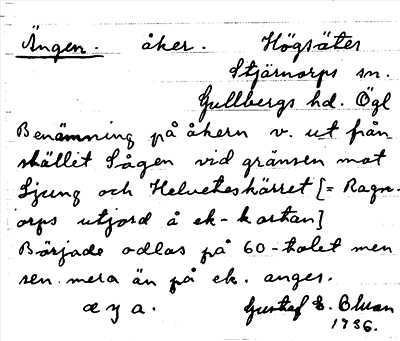 Ängen. åker. Högsäter
Stjärnorps sn.
Gullbergs hd. Ögl
Benämning på åkern v. ut från
stället Sågen vid gränsen mot
Ljung och Helveteskärret [= Ragn-
orps utjord å ek-kartan]
Började odlas på 60-talet men
sen. mera än på ek. anges.
æ y a. Gustaf E. Bluan
1936.